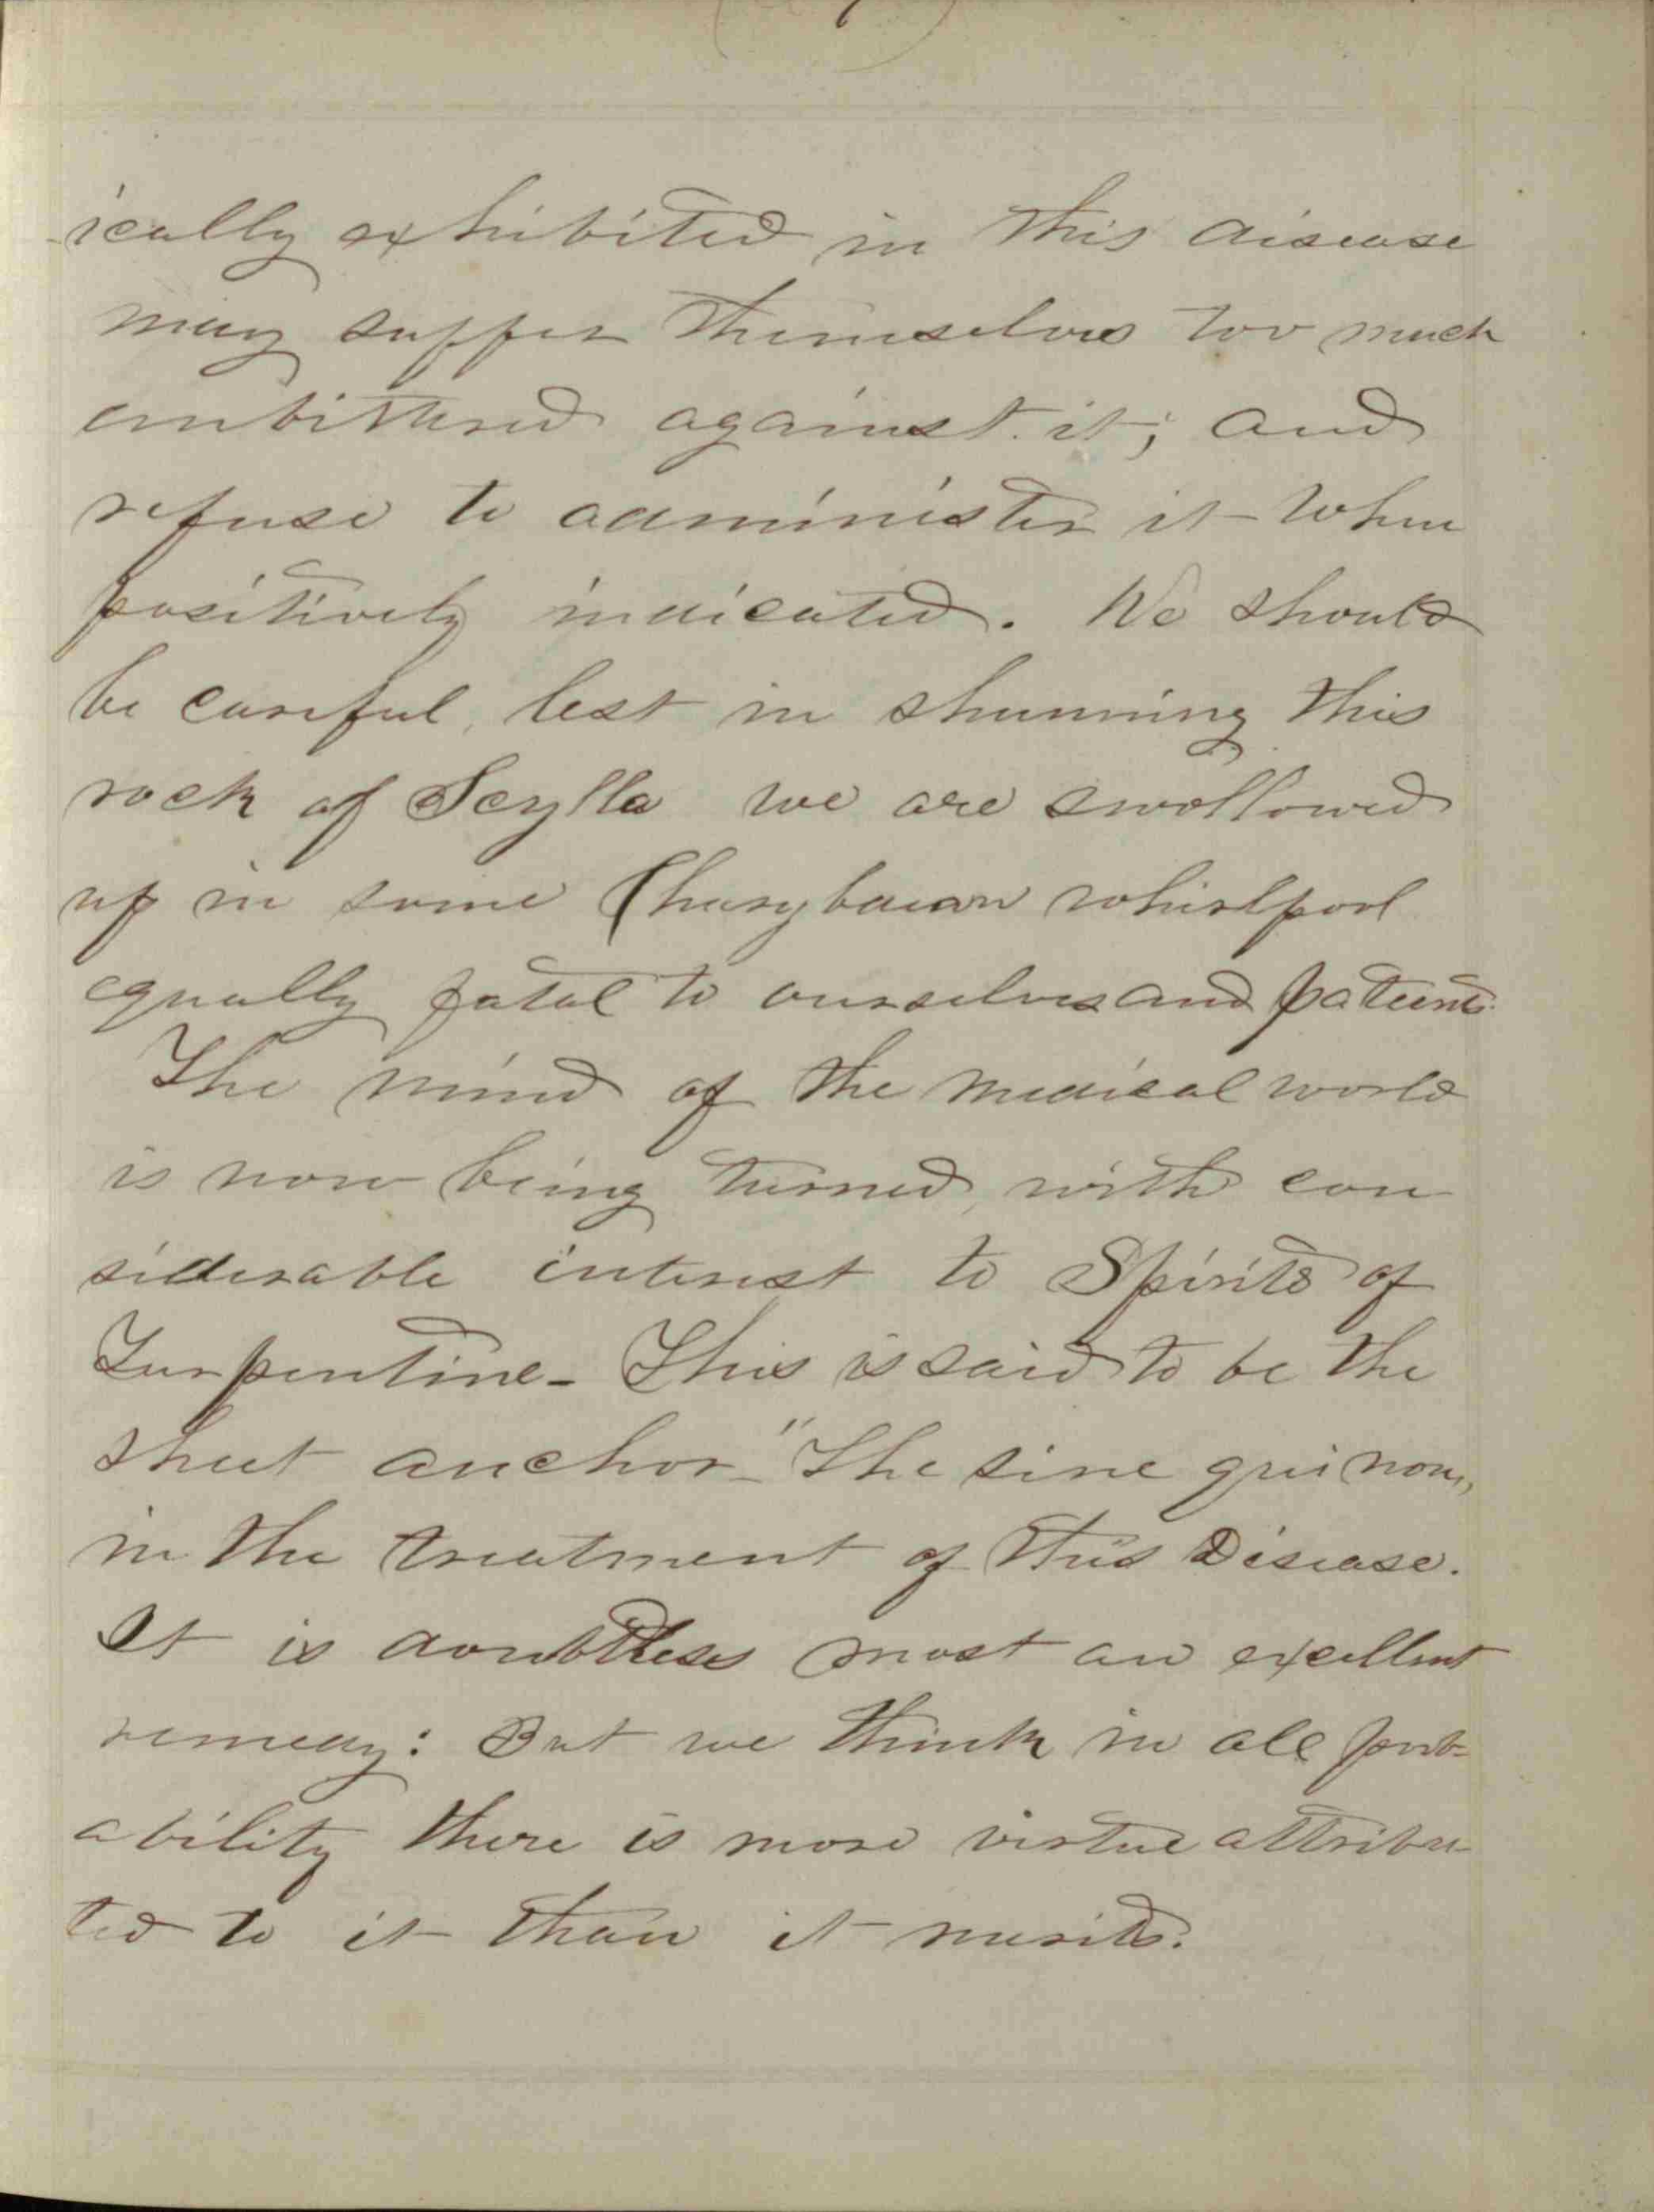 -ically exhibited in this disease
may suffer themselves too much
embittered against it; and
refuse to administer it when
positively indicated. We should
be careful, lest in shunning this
rock of Scylla we are swollowed
up in some Charybdian whirlpool
equally fatal to ourselves and patients.
The mind of the medical world
is now being turned, with con
siderable interest to Spirits of
Turpentine - This is said to be the
sheet anchor - "The sine qui non,,
in the treatment of this Disease.
It is doubtless most an excellent
remedy: But we think in all prob-
ability there is more virtue attribu-
ted to it than it merits.